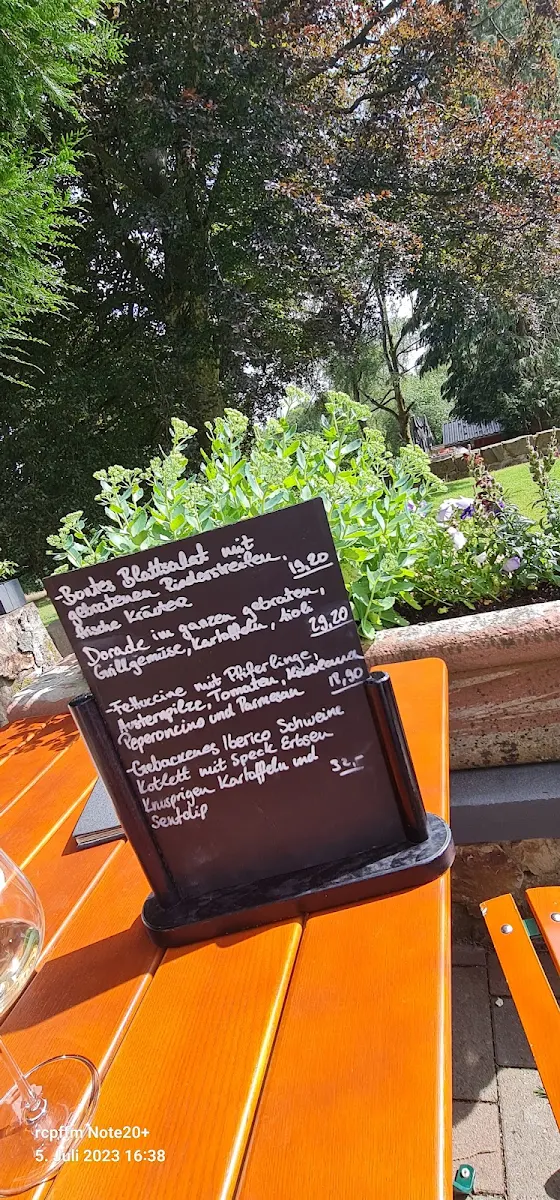 -Buntes Blattsalat mit
gebratenen Rinderstreifen,
frische Kräuter 19.20
Dorade im ganzen gebraten,
Grillgemüse, Kartoffeln, Aioli 29.20
-Fettuccine mit Pfiferlinge,
Austernpilze, Tomaten,
Peperoncino und Parmesan 18,90
-Gebackenes Iberico Schweine
Kotlett mit Speck Erbsen
Knusprigen Kartoffeln und 32,-
Senfdip
rcpffm Note20+
5. Juli 2023 16:38